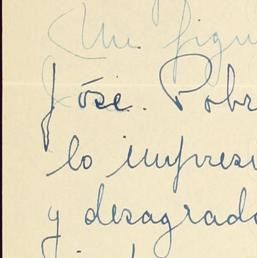 Mi figu
José. Pobr
lo impresi
y desagrado